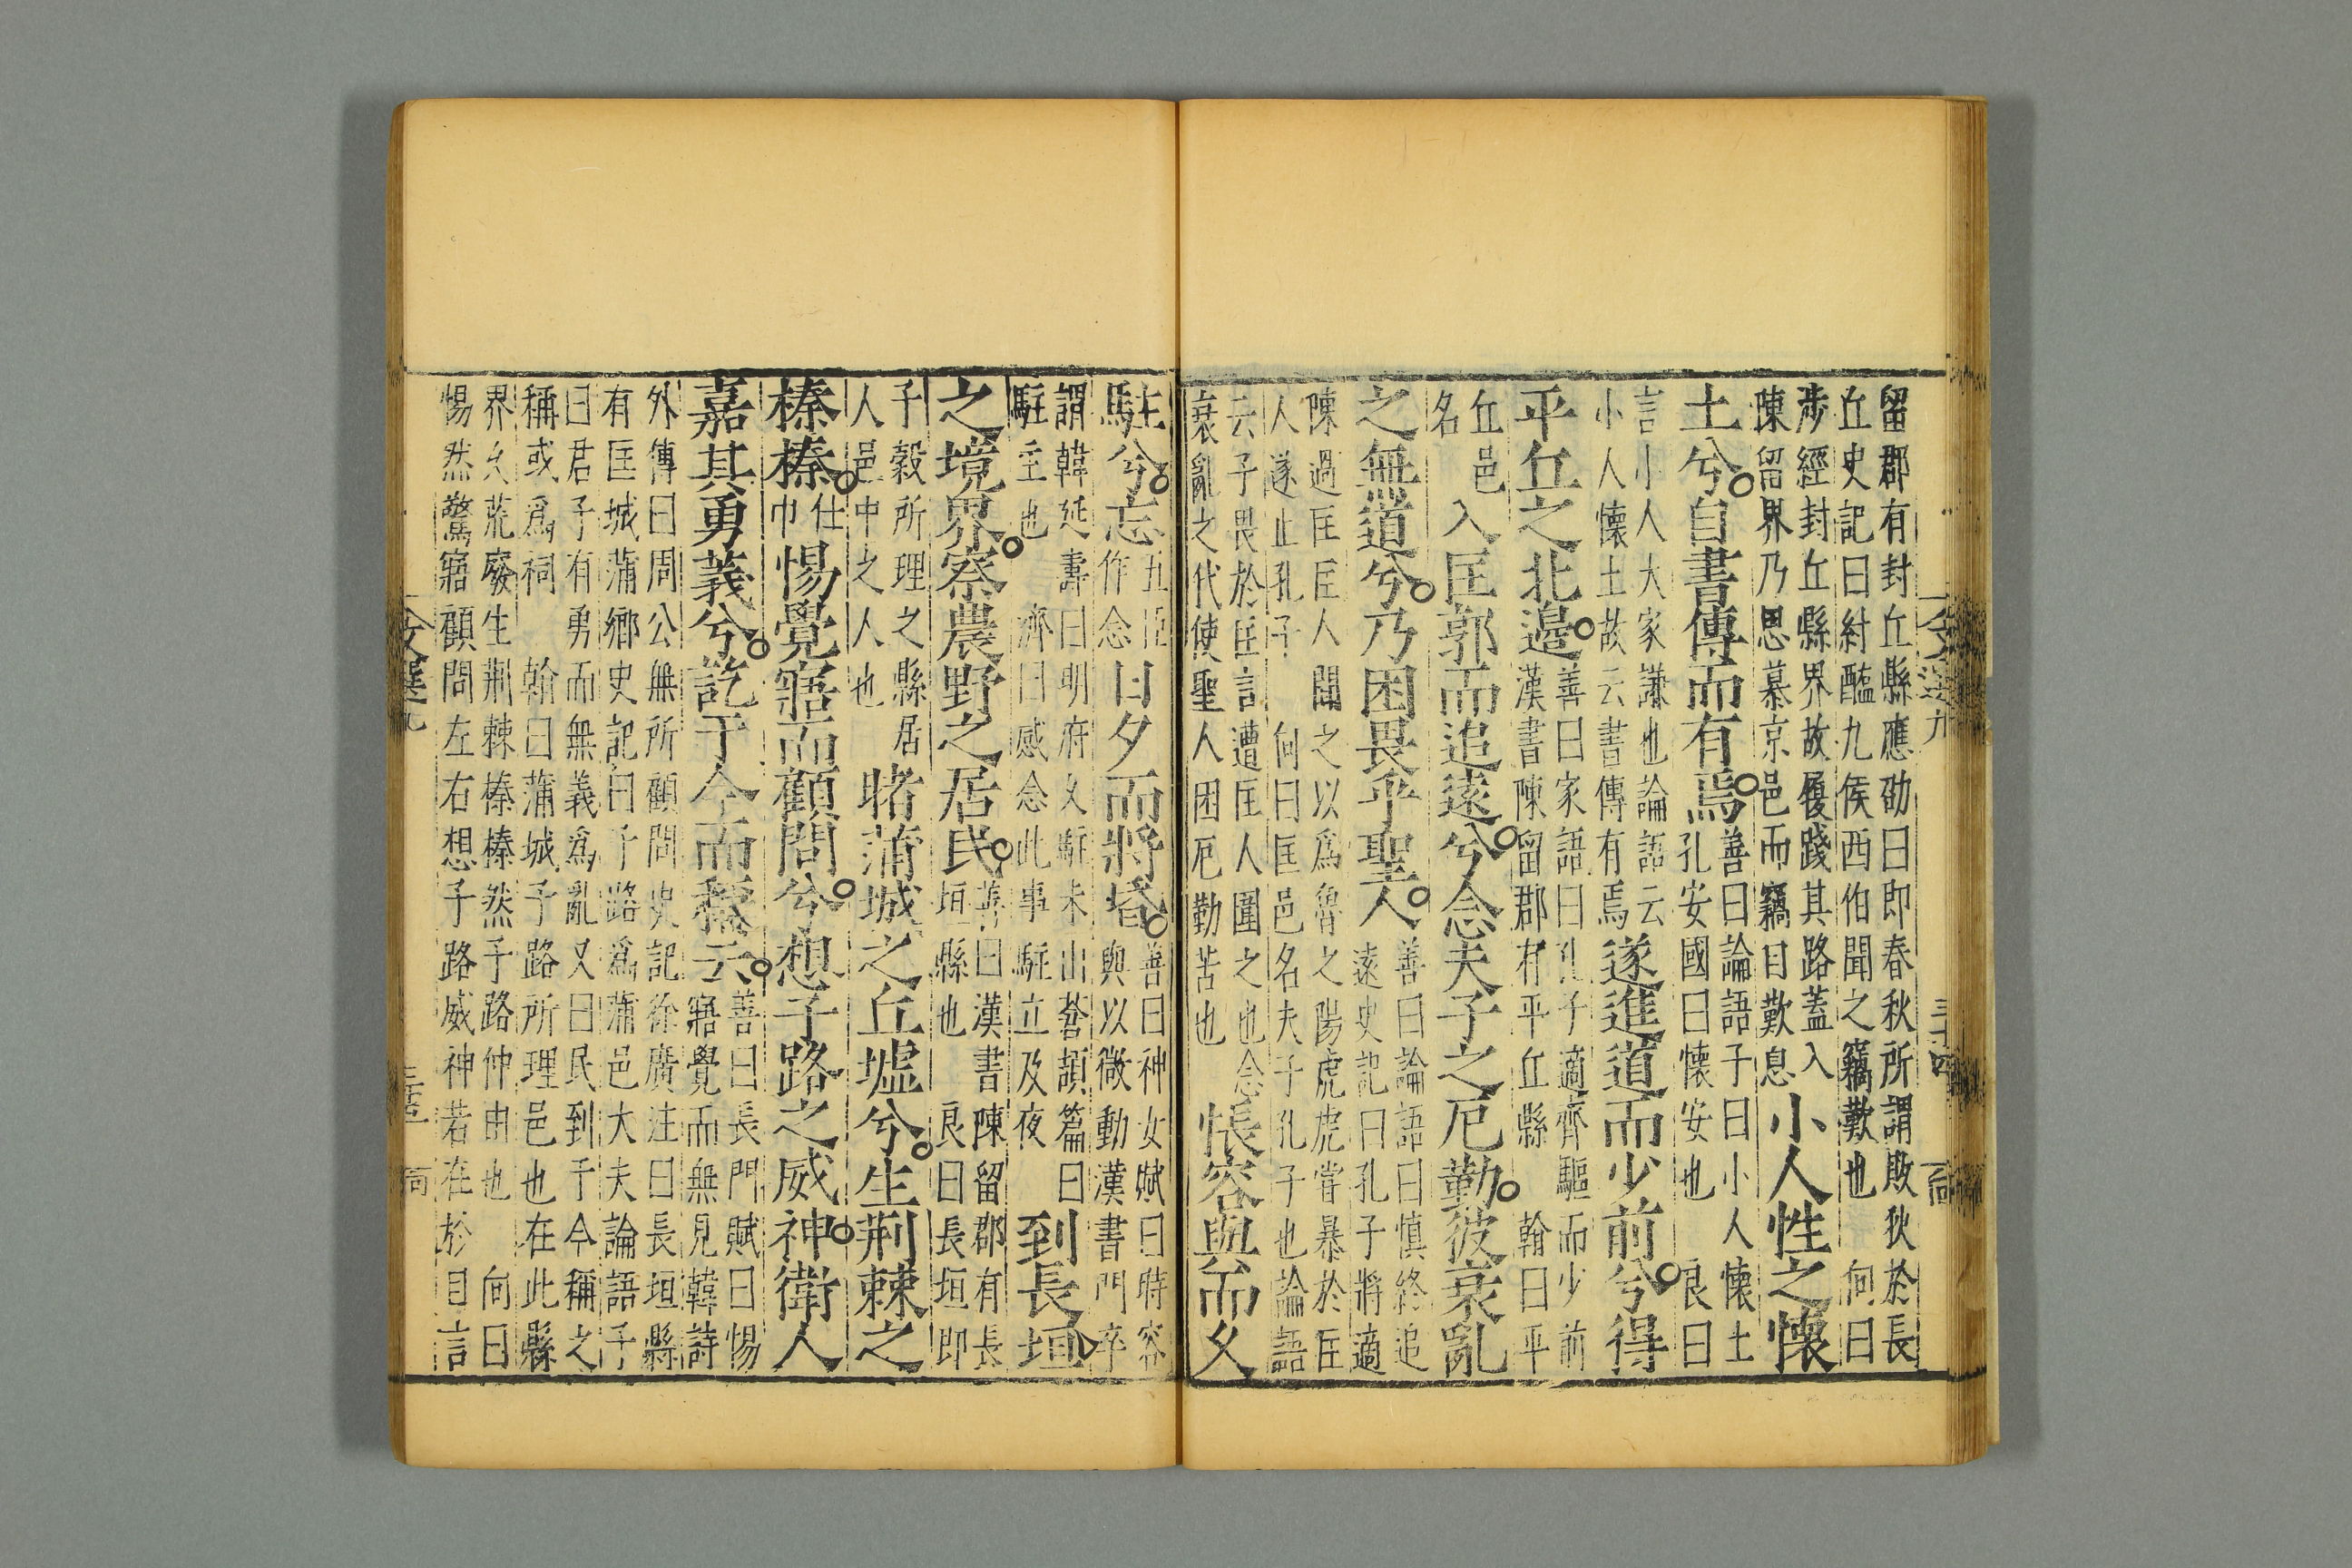 留郡有封丘縣應劭曰即春秋所謂敗狄於長
丘史記曰紂醢九侯西伯聞之竊歎也 向曰
涉經封丘縣界故履踐其路蓋入
陳留界乃思慕京邑而竊自歎息
小人性之懷
土兮自書傳而有焉
善曰論語子曰小人懷土
孔安國曰懷安也 良曰
言小人大家謙也論語云
小人懷土故云書傳有焉
遂進道而少前兮得
平丘之北邊
善曰家語曰孔子適齊驅而少前
漢書陳留郡有平丘縣 翰曰平
丘邑
名
入匡郭而追遠兮念夫子之厄勤彼衰亂
之無道兮乃困畏乎聖人
善曰論語曰慎終追
遠史記曰孔子將適
陳過匡匡人聞之以爲魯之陽虎虎嘗暴於匡
人遂止孔子 向曰匡邑名夫子孔子也論語
云子畏於匡言遭匡人圍之也念
衰亂之代使聖人困厄勤苦也
悵容與而久
駐兮忘
五臣
作念
日夕而將昏
善曰神女賦曰時容
與以微動漢書門卒
謂韓延壽曰明府久駐未出蒼頡篇曰
駐主也 濟曰感念此事駐立及夜
到長垣
之境界察農野之居民
善曰漢書陳留郡有長
垣縣也 良曰長垣即
子穀所理之縣居
人邑中之人也
睹蒲城之丘墟兮生荆棘之
榛榛
仕
巾
惕覺寤而顧問兮想子路之威神衛人
嘉其勇義兮訖于今而稱云
善曰長門賦曰惕
寤覺而無見韓詩
外傳曰周公無所顧問史記徐廣注曰長垣縣
有匡城蒲鄉史記曰子路爲蒲邑大夫論語子
曰君子有勇而無義爲亂又曰民到于今稱之
稱或爲祠 翰曰蒲城子路所理邑也在此縣
界久荒廢生荆棘榛榛然子路仲由也 向曰
惕然驚寤顧問左右想子路威神若在於目言
文選九